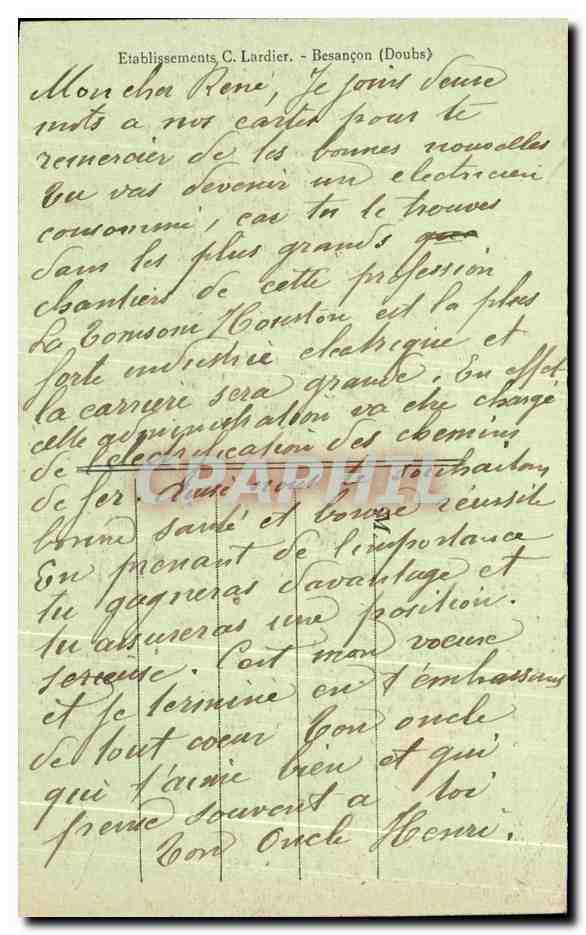 Etablissements C. Lardier. - Besançon (Doubs)
Mon cher René, Je joins deux
mots a nos cartes pour te
remercier de tes bonnes nouvelles
Tu vas devenir un electricien
consommé, car tu te trouves
dans les plus grands
chantiers de cette profession
La Tomson Houston est la plus
forte industrie electrique et
la carriere sera grande. En effet
cette administration va etre chargé
de l'electrification des chemins
de fer. Aussi nous te souhaitons
bonne santé et bonne réussite
En prenant de l'importance
tu gagneras davantage et
tu assureras une position.
serieuse. C'est mon voeux
et je termine en t'embrassant
de tout coeur Ton oncle
qui t'aime bien et qui
pense souvent a toi
Ton Oncle Henri.
M.
CPAPHIL